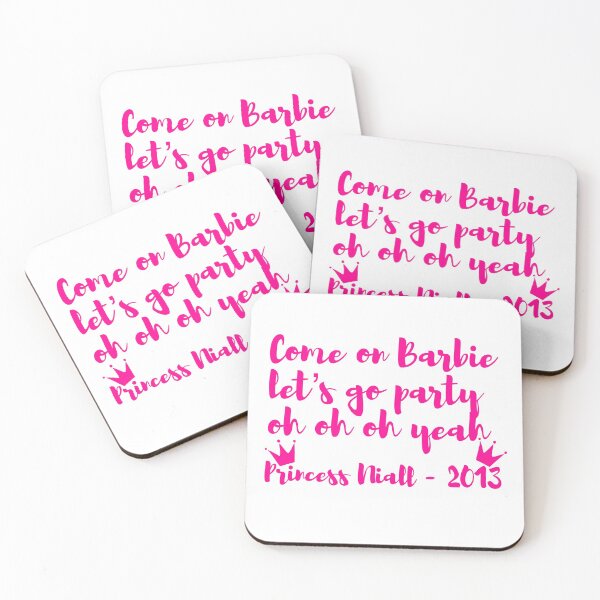 Come on Barbie
let's go party
oh oh yeah
Come on Barbie
let's go party
oh oh oh yeah
Princess Niall - 2013
Come on Barbie
let's go party
oh oh oh yeah
Princess Niall
Come on Barbie
let's go party
oh oh oh yeah
Princess Niall - 2013